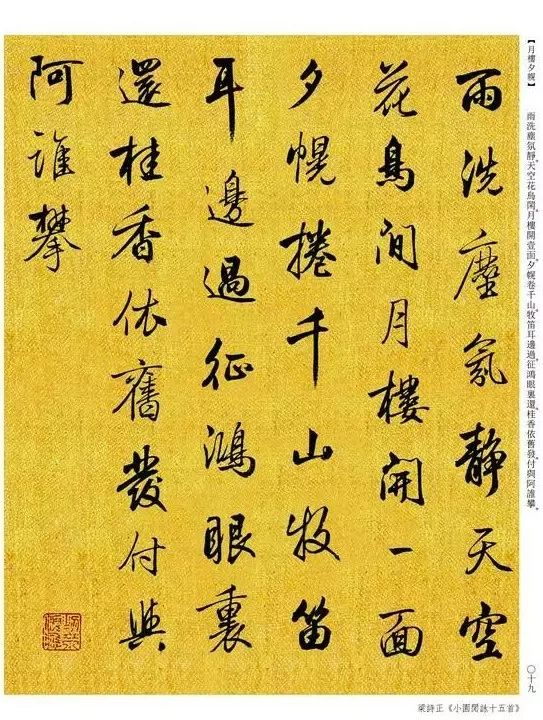 【月樓夕幌】 雨洗塵氛靜。天空花鳥閑。月樓開壹面。夕幌卷千山。牧笛耳邊過。征鴻眼裏還。桂香依舊發。付與阿誰攀。
〇十九
雨洗塵氛靜天空
花鳥間月樓開一面
夕幌捲千山牧笛
耳邊過征鴻眼裏
還桂香依舊發付與
阿誰攀
梁詩正《小園閒詠十五首》